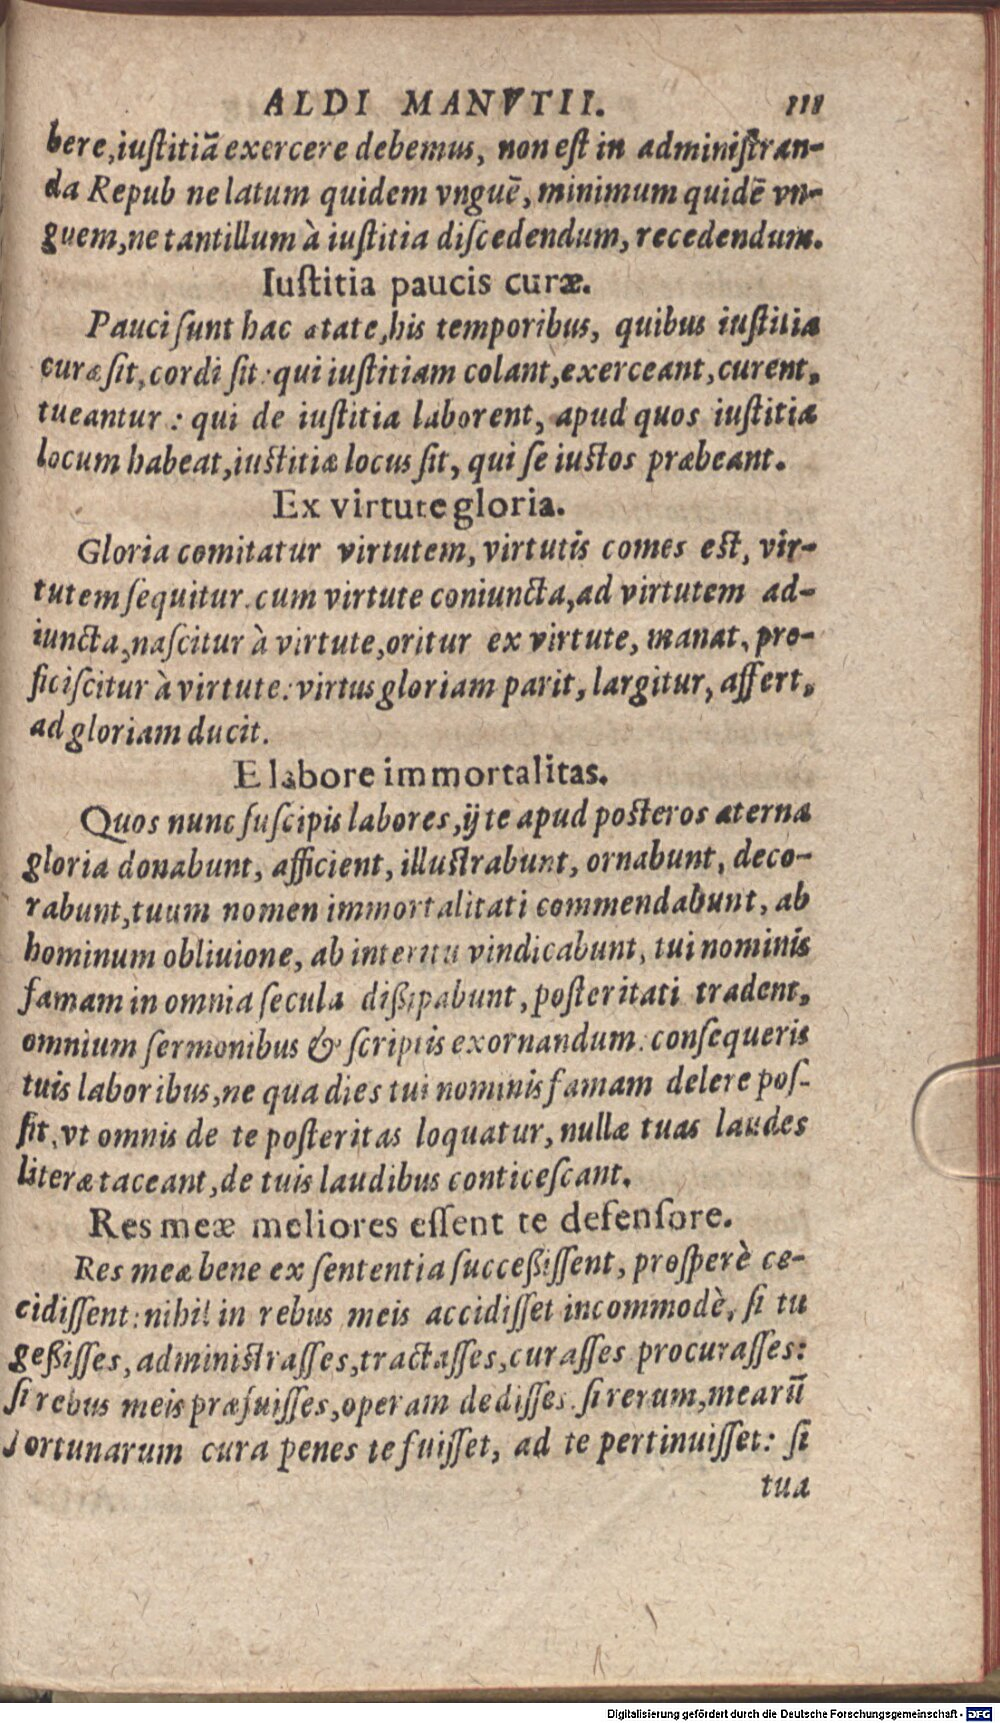 ALDI MANVTII. 111
bere, iuſtitiā exercere debemus, non eſt in adminiſtran-
da Repub ne latum quidem vnguē, minimum quidē vn-
guem, ne tantillum à iuſtitia diſcedendum, recedendum.
Iuſtitia paucis curæ.
Pauci ſunt hac ætate, his temporibus, quibus iuſtitia
curæ ſit, cordi ſit: qui iuſtitiam colant, exerceant, curent,
tueantur: qui de iuſtitia laborent, apud quos iuſtitia
locum habeat, iuſtitiæ locus ſit, qui ſe iuſtos præbeant.
Ex virtute gloria.
Gloria comitatur virtutem, virtutis comes eſt, vir-
tutem ſequitur. cum virtute coniuncta, ad virtutem ad-
iuncta, naſcitur à virtute, oritur ex virtute, manat, pro-
ficiſcitur à virtute: virtus gloriam parit, largitur, affert,
ad gloriam ducit.
E labore immortalitas.
Quos nunc ſuſcipis labores, ij te apud poſteros æterna
gloria donabunt, afficient, illuſtrabunt, ornabunt, deco-
rabunt, tuum nomen immortalitati commendabunt, ab
hominum obliuione, ab interitu vindicabunt, tui nominis
famam in omnia ſecula dißipabunt, poſteritati tradent,
omnium ſermonibus & ſcriptis exornandum: conſequeris
tuis laboribus, ne qua dies tui nominis famam delere poſ-
ſit, vt omnis de te poſteritas loquatur, nullæ tuas laudes
literæ taceant, de tuis laudibus conticeſcant.
Res meæ meliores eſſent te defenſore.
Res meæ bene ex ſententia ſucceßiſſent, proſperè ce-
cidiſſent: nihil in rebus meis accidiſſet incommodè, ſi tu
geßiſſes, adminiſtraſſes, tractaſſes, curaſſes procuraſſes:
ſi rebus meis præfuiſſes, operam dediſſes. ſi rerum, mearū
fortunarum cura penes te fuiſſet, ad te pertinuiſſet: ſi
tua
Digitalisierung gefördert durch die Deutsche Forschungsgemeinschaft - DFG